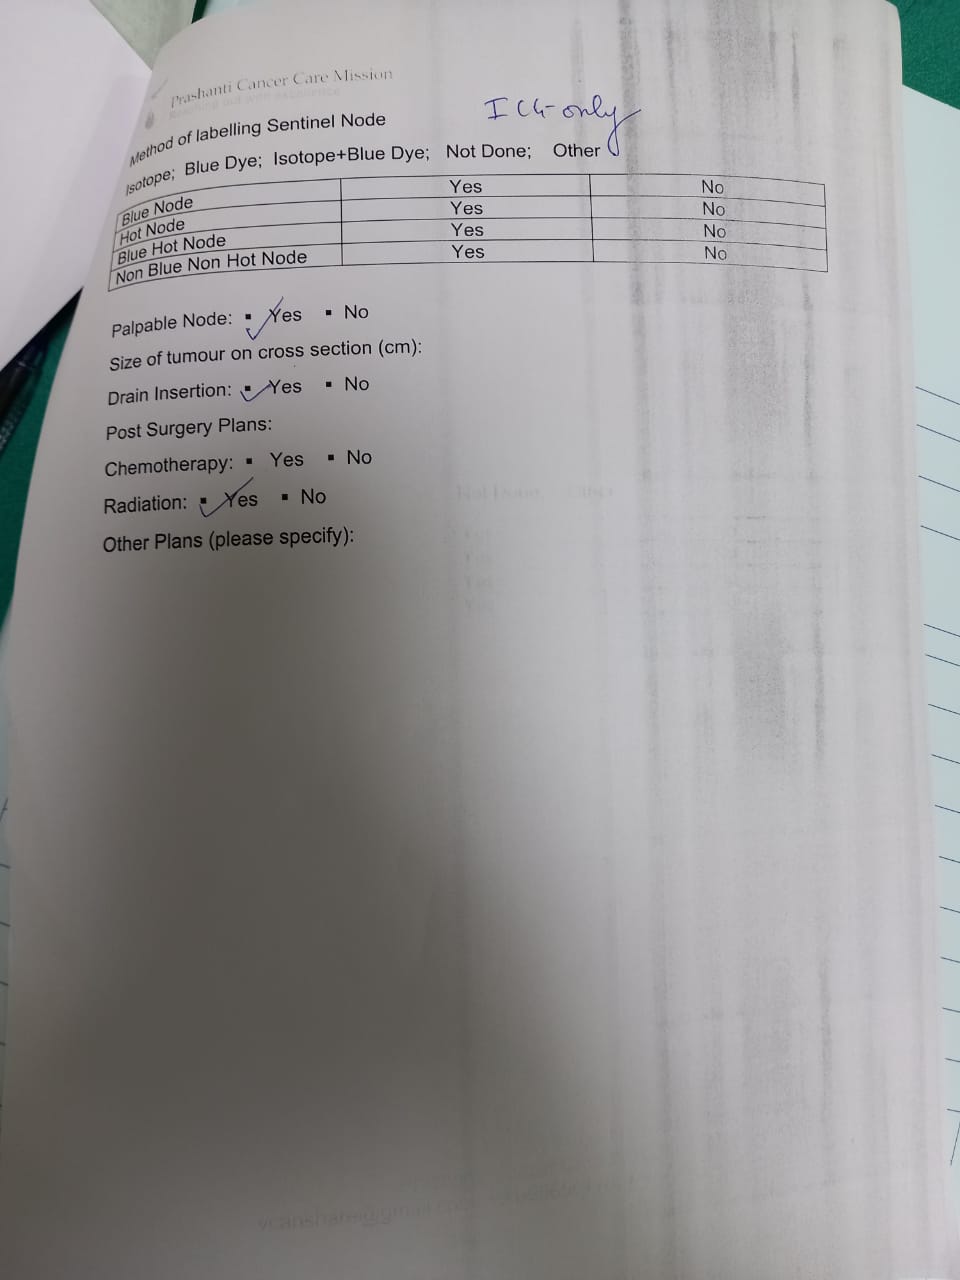 Prashanti Cancer Care Mission
Method of labelling Sentinel Node
ICG-only
Isotope; Blue Dye; Isotope+Blue Dye; Not Done; Other
Blue Node Yes No
Hot Node Yes No
Blue Hot Node Yes No
Non Blue Non Hot Node Yes No
Palpable Node: ▪ Yes ▪ No
Size of tumour on cross section (cm):
Drain Insertion: ▪ Yes ▪ No
Post Surgery Plans:
Chemotherapy: ▪ Yes ▪ No
Radiation: ▪ Yes ▪ No
Other Plans (please specify):